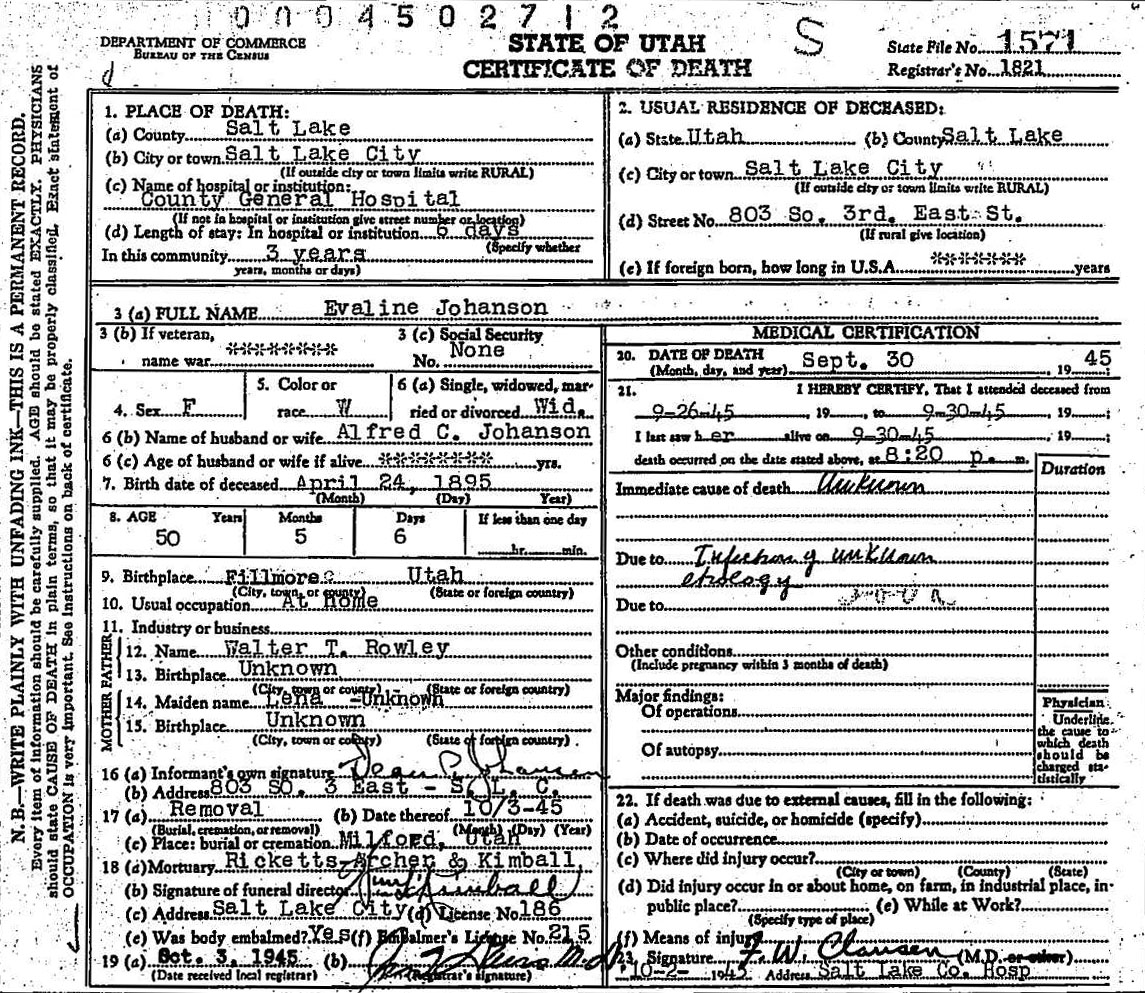 0004502712
DEPARTMENT OF COMMERCE
BUREAU OF THE CENSUS
STATE OF UTAH
CERTIFICATE OF DEATH
S
State File No. 1571
Registrar's No. 1821
d
N. B.—WRITE PLAINLY WITH UNFADING INK—THIS IS A PERMANENT RECORD.
Every item of information should be carefully supplied. AGE should be stated EXACTLY. PHYSICIANS
should state CAUSE OF DEATH in plain terms, so that it may be properly classified. Exact statement of
OCCUPATION is very important. See instructions on back of certificate.
1. PLACE OF DEATH:
(a) County Salt Lake
(b) City or town Salt Lake City
(If outside city or town limits write RURAL)
(c) Name of hospital or institution:
County General Hospital
(If not in hospital or institution give street number or location)
(d) Length of stay: In hospital or institution 6 days
(Specify whether
In this community 3 years
years, months or days)
2. USUAL RESIDENCE OF DECEASED:
(a) State Utah (b) County Salt Lake
(c) City or town Salt Lake City
(If outside city or town limits write RURAL)
(d) Street No. 803 So. 3rd. East St.
(If rural give location)
(e) If foreign born, how long in U.S.A. ******** years
3 (a) FULL NAME Evaline Johanson
3 (b) If veteran,
name war *********
3 (c) Social Security
No. None
4. Sex F
5. Color or
race W
6 (a) Single, widowed, mar-
ried or divorced Wid.
6 (b) Name of husband or wife Alfred C. Johanson
6 (c) Age of husband or wife if alive ********* yrs.
7. Birth date of deceased April 24, 1895
(Month) (Day) Year)
8. AGE Years Months Days If less than one day
50 5 6 hr. min.
9. Birthplace Fillmore Utah
(City, town, or county) (State or foreign country)
10. Usual occupation At Home
11. Industry or business
FATHER
12. Name Walter T. Rowley
13. Birthplace Unknown
(City, town or county) (State or foreign country)
MOTHER
14. Maiden name Lena -Unknown
15. Birthplace Unknown
(City, town or county) (State or foreign country)
16 (a) Informant's own signature Dean C. Johansen
(b) Address 803 SO. 3 East - S. L. C.
17 (a) Removal (b) Date thereof 10/3-45
(Burial, cremation, or removal) (Month) (Day) (Year)
(c) Place: burial or cremation Milford, Utah
18 (a) Mortuary Ricketts-Archer & Kimball
(b) Signature of funeral director Kimball
(c) Address Salt Lake City (d) License No. 186
(e) Was body embalmed? Yes (f) Embalmer's License No. 215
19 (a) Oct. 3, 1945 (b) M.D.
(Date received local registrar) (Registrar's signature)
MEDICAL CERTIFICATION
20. DATE OF DEATH
(Month, day, and year) Sept. 30 19 45
21. I HEREBY CERTIFY, That I attended deceased from
9-26-45, 19 , to 9-30-45, 19 ;
I last saw her alive on 9-30-45, 19 ;
death occurred on the date stated above, at 8:20 p. m.
Duration
Immediate cause of death Unknown
Due to Infection of unknown
etiology
Due to
Other conditions
(Include pregnancy within 3 months of death)
Major findings:
Of operations
Of autopsy
Physician
Underline
the cause to
which death
should be
charged sta-
tistically
22. If death was due to external causes, fill in the following:
(a) Accident, suicide, or homicide (specify)
(b) Date of occurrence
(c) Where did injury occur?
(City or town) (County) (State)
(d) Did injury occur in or about home, on farm, in industrial place, in-
public place? (e) While at Work?
(Specify type of place)
(f) Means of injury
23. Signature F. W. Clausen (M.D. or other)
10-2- 1945 Address Salt Lake Co. Hosp